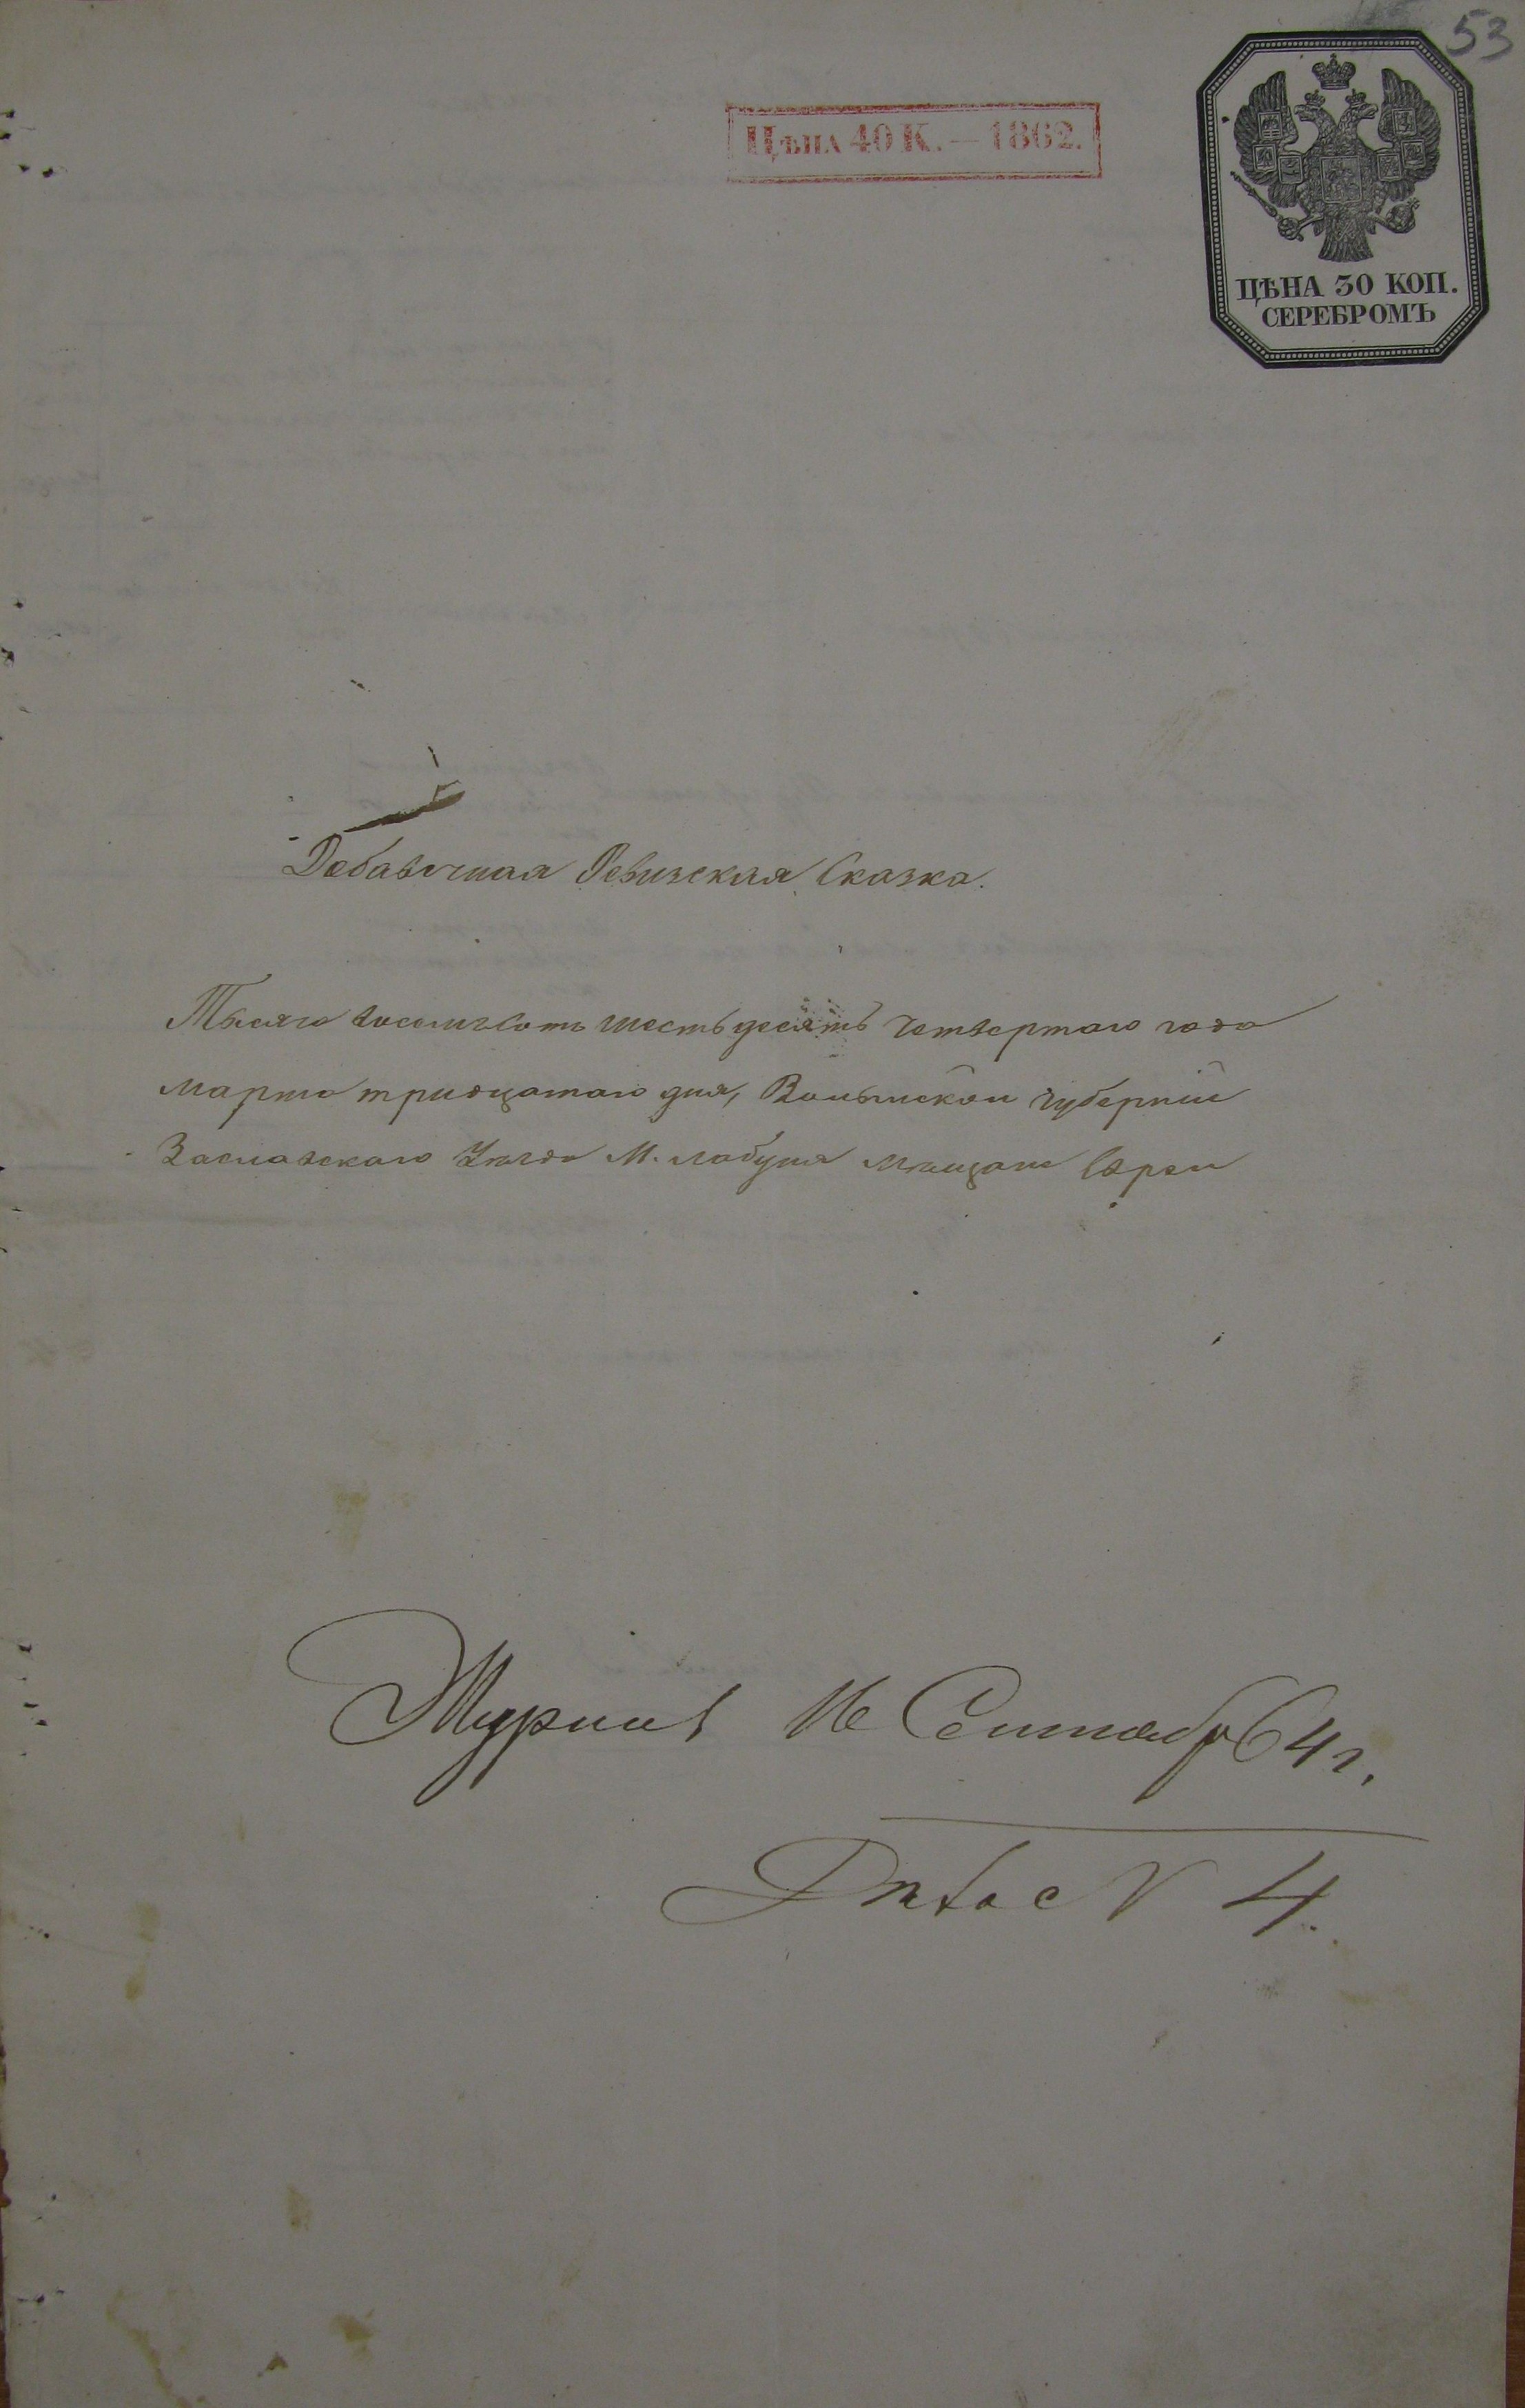 53
Цѣна 40 К. — 1862.
ЦѢНА 30 КОП.
СЕРЕБРОМЪ
Добавочная Ревизская Сказка.
Тысяча восемъсотъ шестьдесятъ четвертаго года
марта тридцатаго дня, Волынской губерніи
Заславскаго Уѣзда М. лабуня мѣщане Евреи
16 Сентябр 64 г.
4.